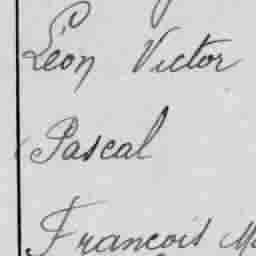 Léon Victor
Pascal
Francois